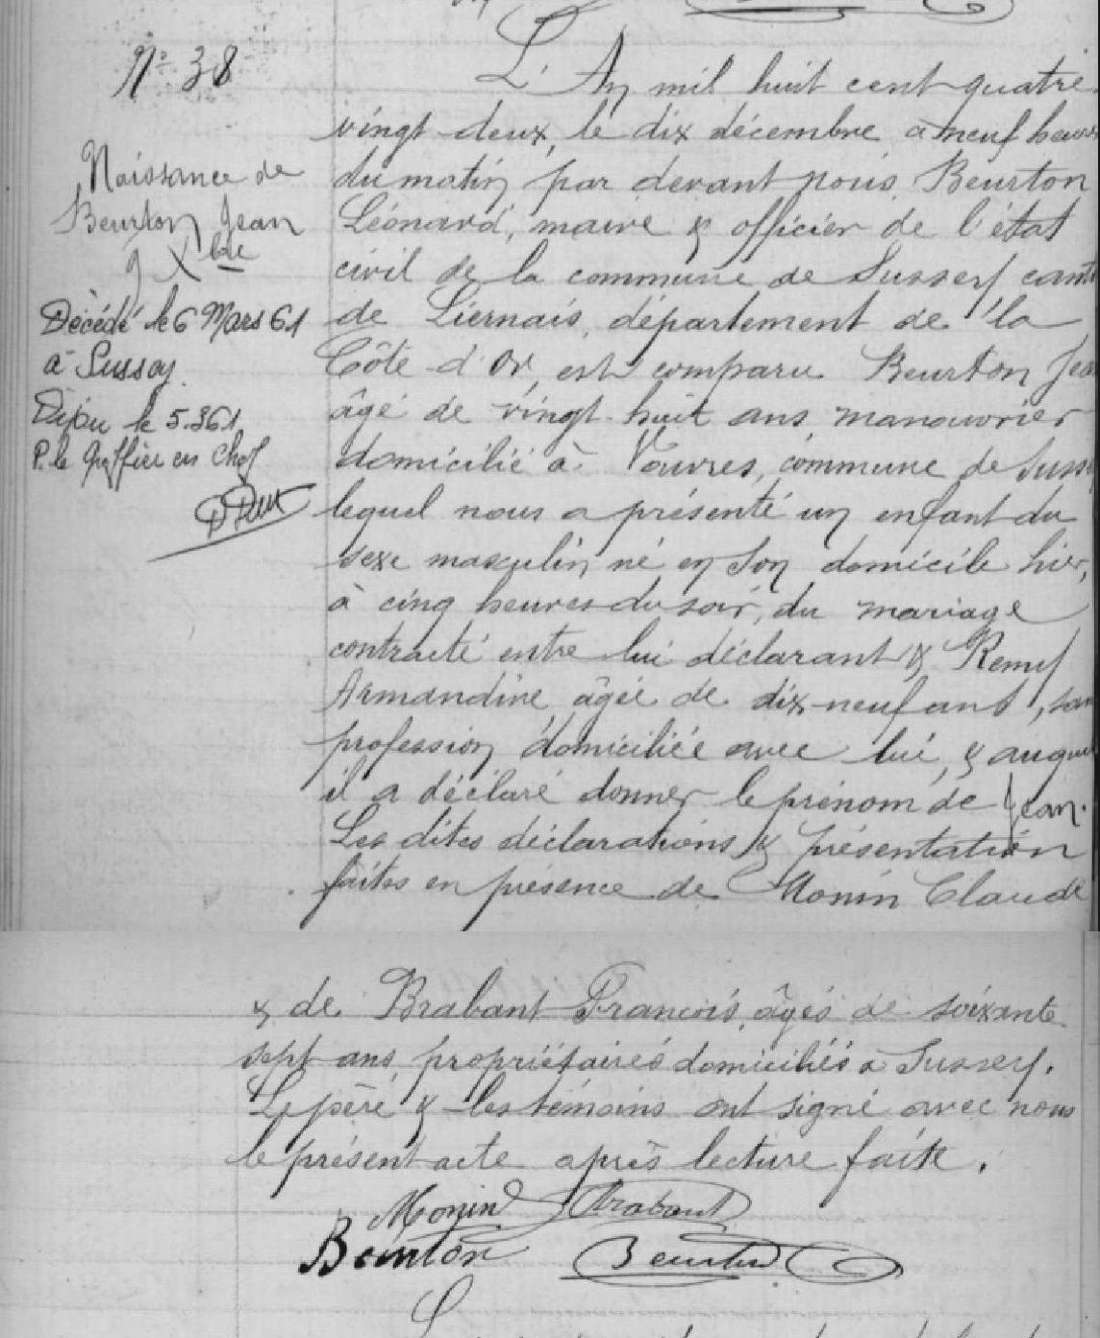 N° 38
Naissance de
Beurton Jean
9 Xbre
Décédé le 6 Mars 61
à Sussey
Dijon le 5.3.61
P. le Greffier en Chef
L'An mil huit cent quatre
vingt deux, le dix décembre à neuf heures
du matin par devant nous Beurton
Léonard, maire & officier de l'état
civil de la commune de Sussey cant
de Liernais, département de la
Côte d'Or, est comparu Beurton Jea
âgé de vingt huit ans manouvrier
domicilié à Vouvres, commune de Suss
lequel nous a présenté un enfant du
sexe masculin né en son domicile hier,
à cinq heures du soir, du mariage
contracté entre lui déclarant & Remy
Armandine âgée de dix-neuf ans, san
profession domiciliée avec lui, & auque
il a déclaré donner le prénom de Jean.
Les dites déclarations & présentation
faites en présence de Monin Claude
& de Brabant Francois, âgés de soixante
sept ans, propriétaires domiciliés à Sussey.
Le père & les témoins ont signé avec nous
le présent acte après lecture faite.
Monin Brabant
Beurton Beurton
L